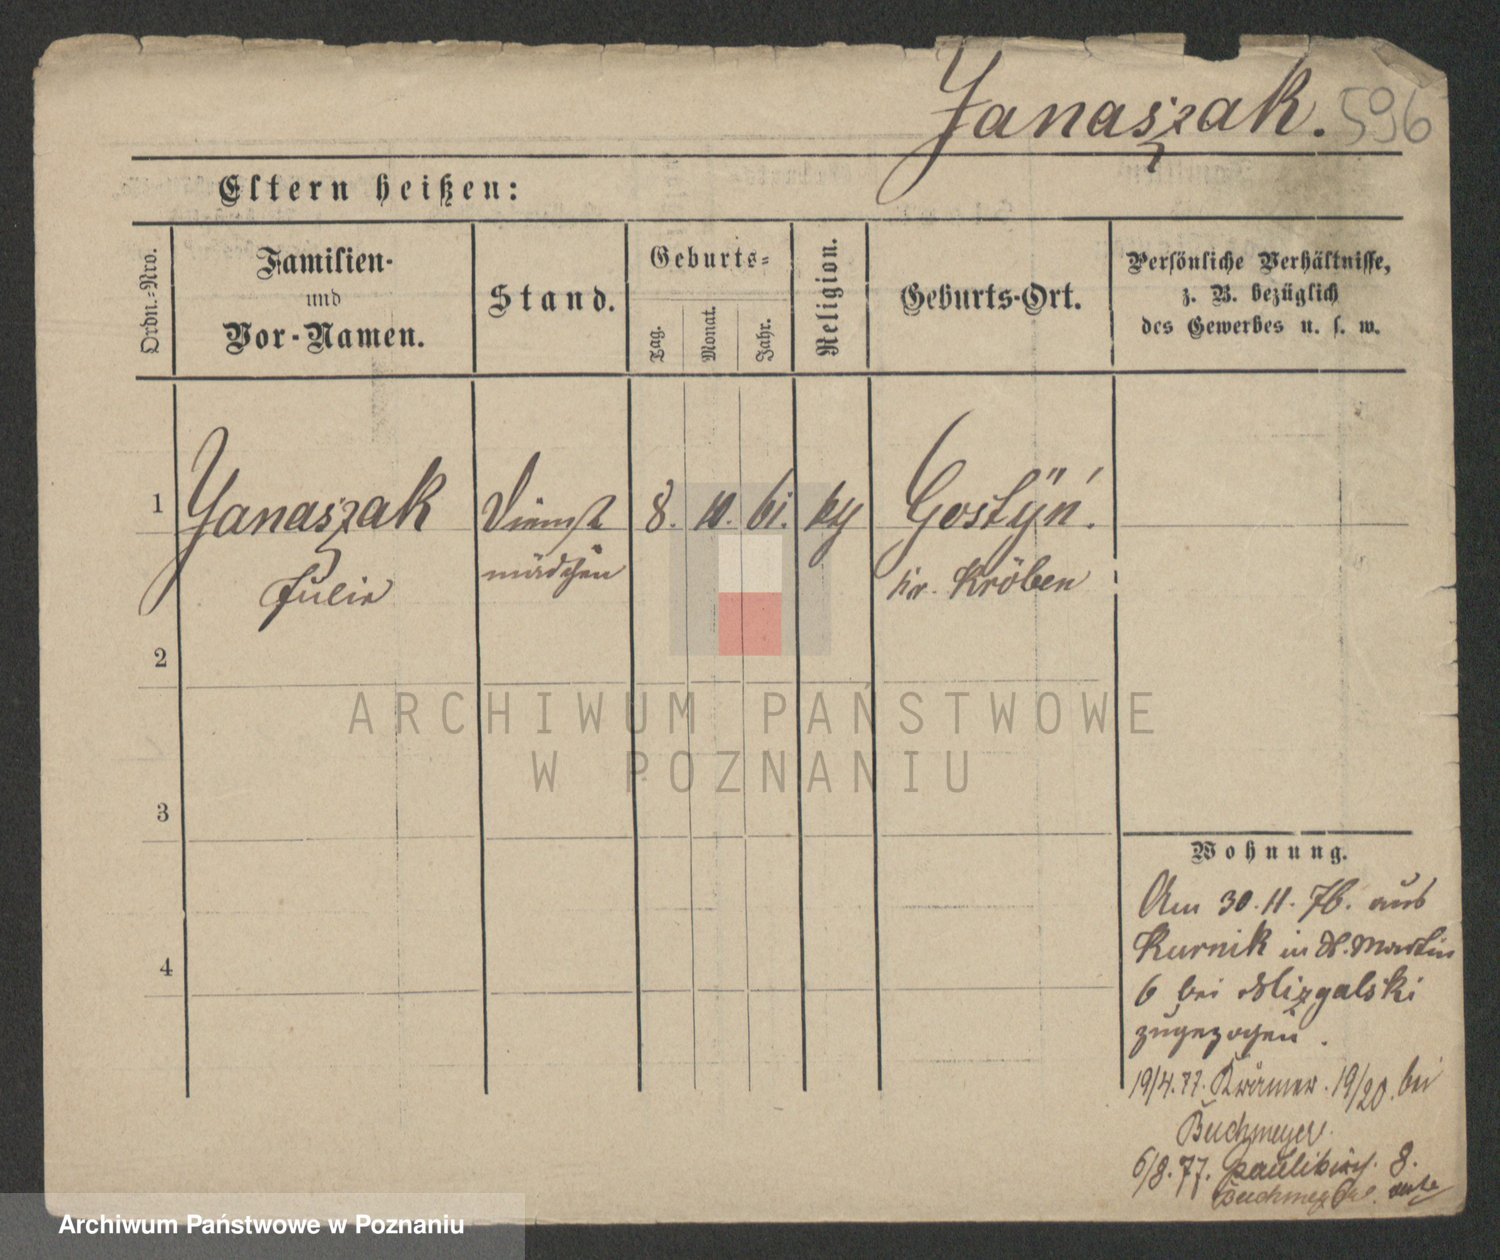 Janaszak. 596
Eltern heißen:
Ordn.-Nro.
Familien-
und
Vor-Namen.
Stand.
Geburts-
Tag.
Monat.
Jahr.
Religion.
Geburts-Ort.
Persönliche Verhältnisse,
z. B. bezüglich
des Gewerbes u. s. w.
1 Janaszak Dienst 8. 10. 61. Gostÿń.
Julie mädchen Kr. Kröben
2
3
4
Wohnung.
Am 30.11.76. aus
Kurnik in St. Martin
6 bei Mizgalski
zugezogen.
19/4.77. Krämer. 19/20. bei
Buchmeyer
6/8.77. Paulikirch. 8.
ARCHIWUM PAŃSTWOWE
W POZNANIU
Archiwum Państwowe w Poznaniu